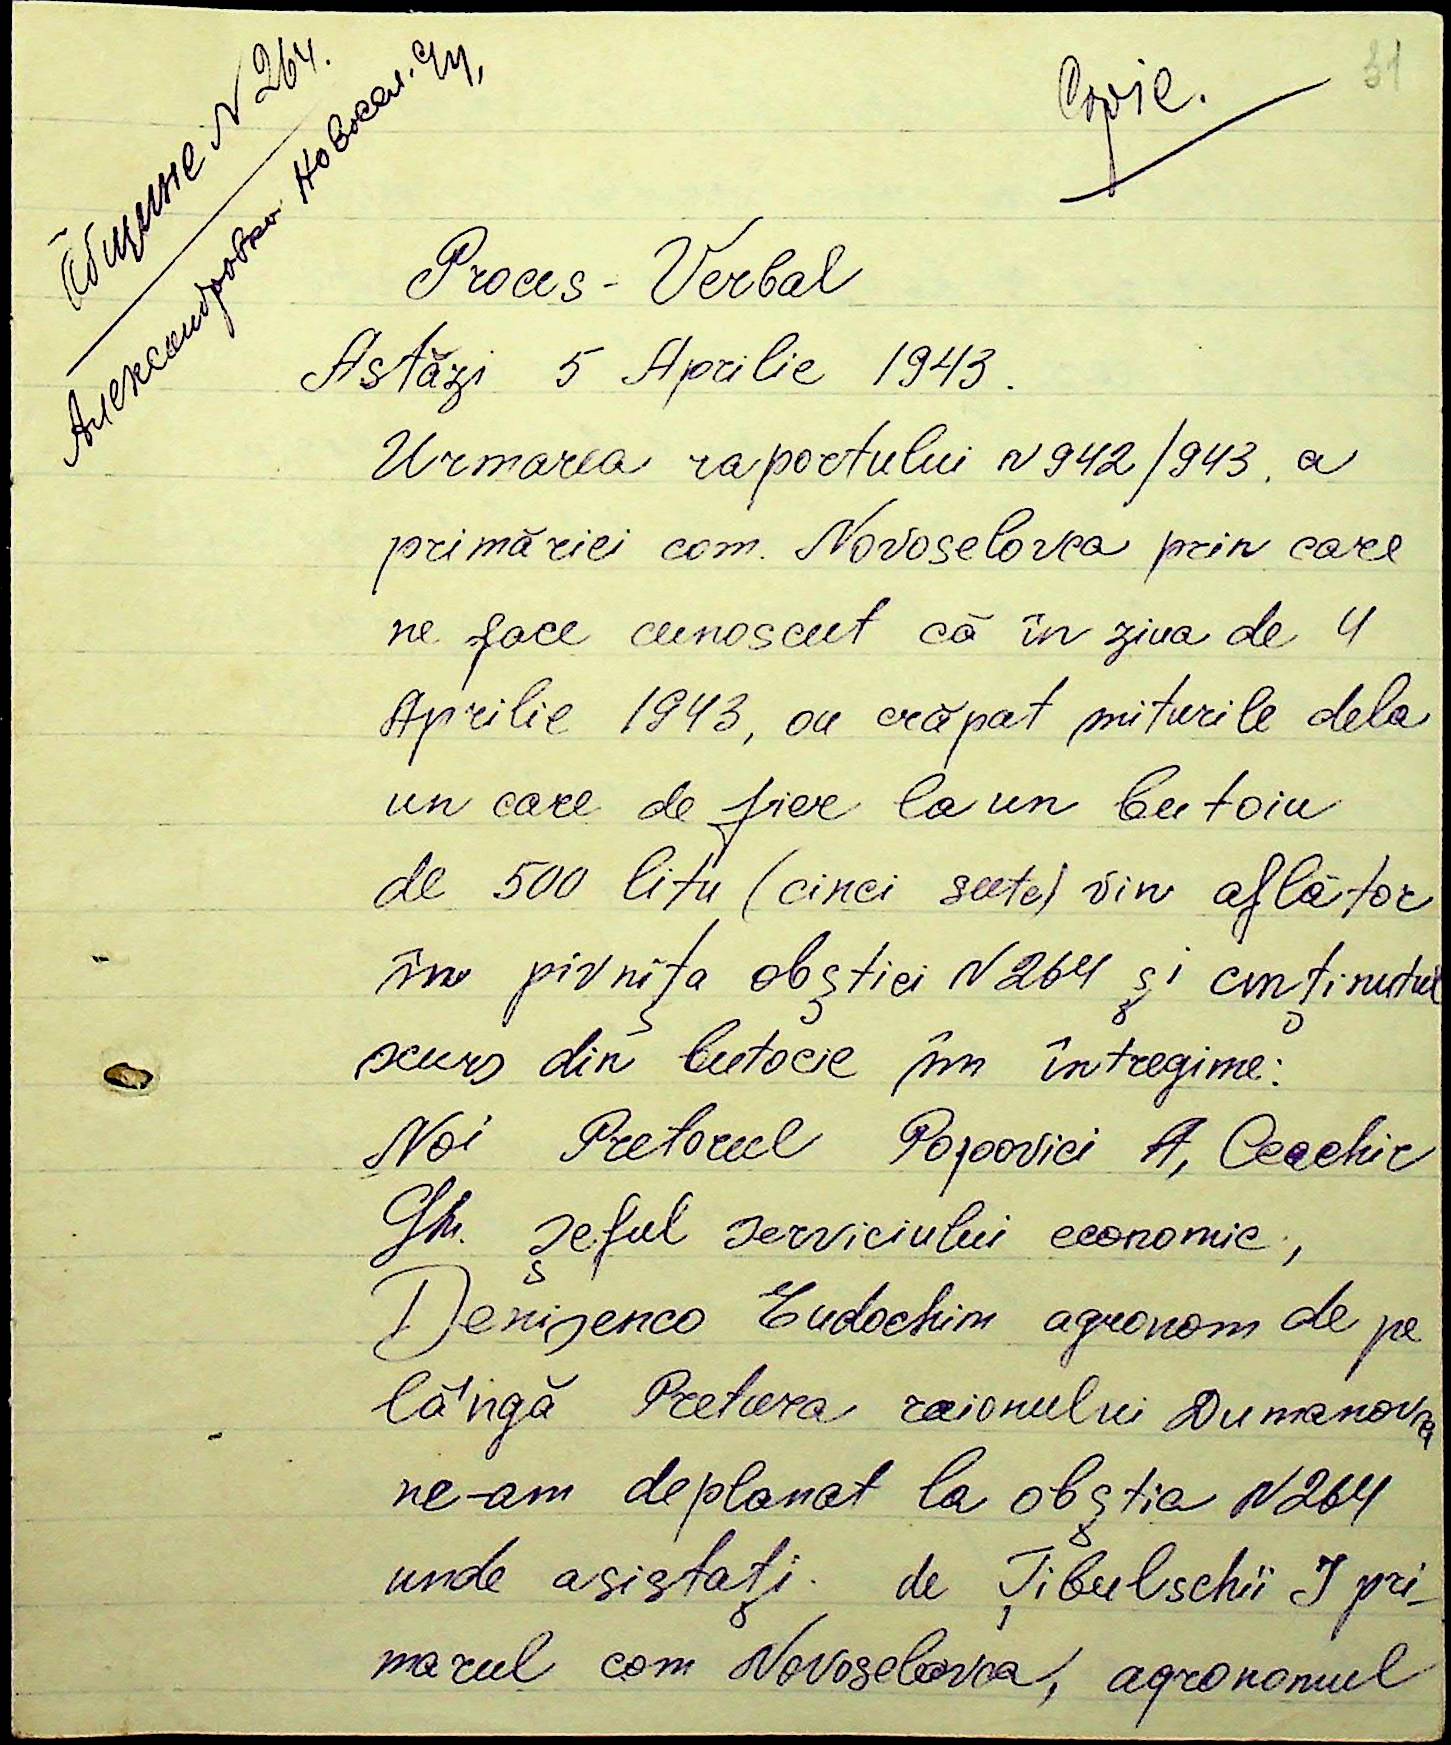 Общине N 264.
Александровка Новосел.
Copie.
31
Proces - Verbal
Astăzi 5 Aprilie 1943.
Urmarea raportului N 942/943. a
primăriei com. Novoselovca prin care
ne face cunoscut că în ziua de 4
Aprilie 1943, au crăpat niturile dela
un care de fier la un butoiu
de 500 litri (cinci sute) vin aflător
în pivnița obștiei N 264 și conținutul
scurs din butoie în întregime:
Noi Pretorul Popovici A, Ceachir
Gh. șeful serviciului economic,
Denisenco Eudochim agronom de pe
lângă Pretura raionului Dumanovca
ne-am deplanat la obștia N 264
unde asistați. de Țibulschii I pri-
marul com Novoselovca, agronomul